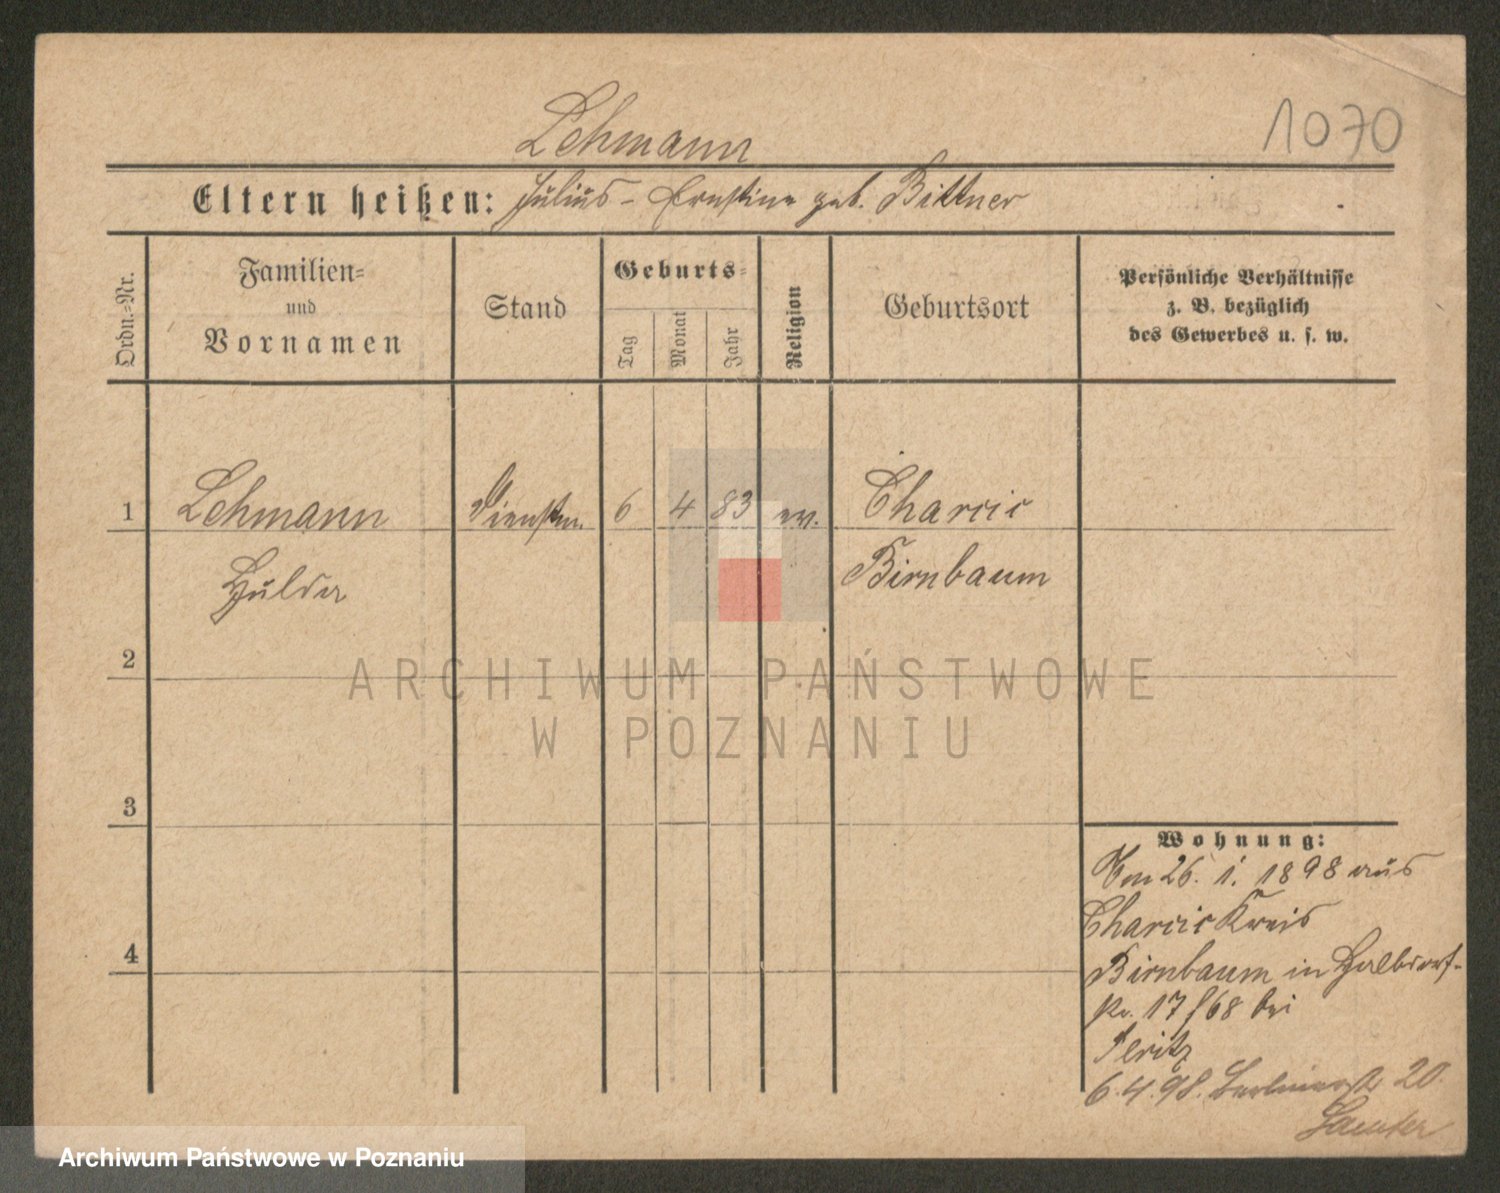 1070
Lehmann
Eltern heißen: Julius - Ernstine geb. Bittner
Ordn.=Nr.
Familien=
und
Vornamen
Stand
Geburts=
Tag
Monat
Jahr
Religion
Geburtsort
Persönliche Verhältnisse
z. B. bezüglich
des Gewerbes u. s. w.
1 Lehmann Dienstm. 6 4 83 ev. Charcic
Hulda Birnbaum
2
ARCHIWUM PAŃSTWOWE
W POZNANIU
3
Wohnung:
Vom 26. 1. 1898 aus
Charcic Kreis
Birnbaum in Halbdorf-
17/68 bei
6.4.98. Berlinerstr 20.
Archiwum Państwowe w Poznaniu
4